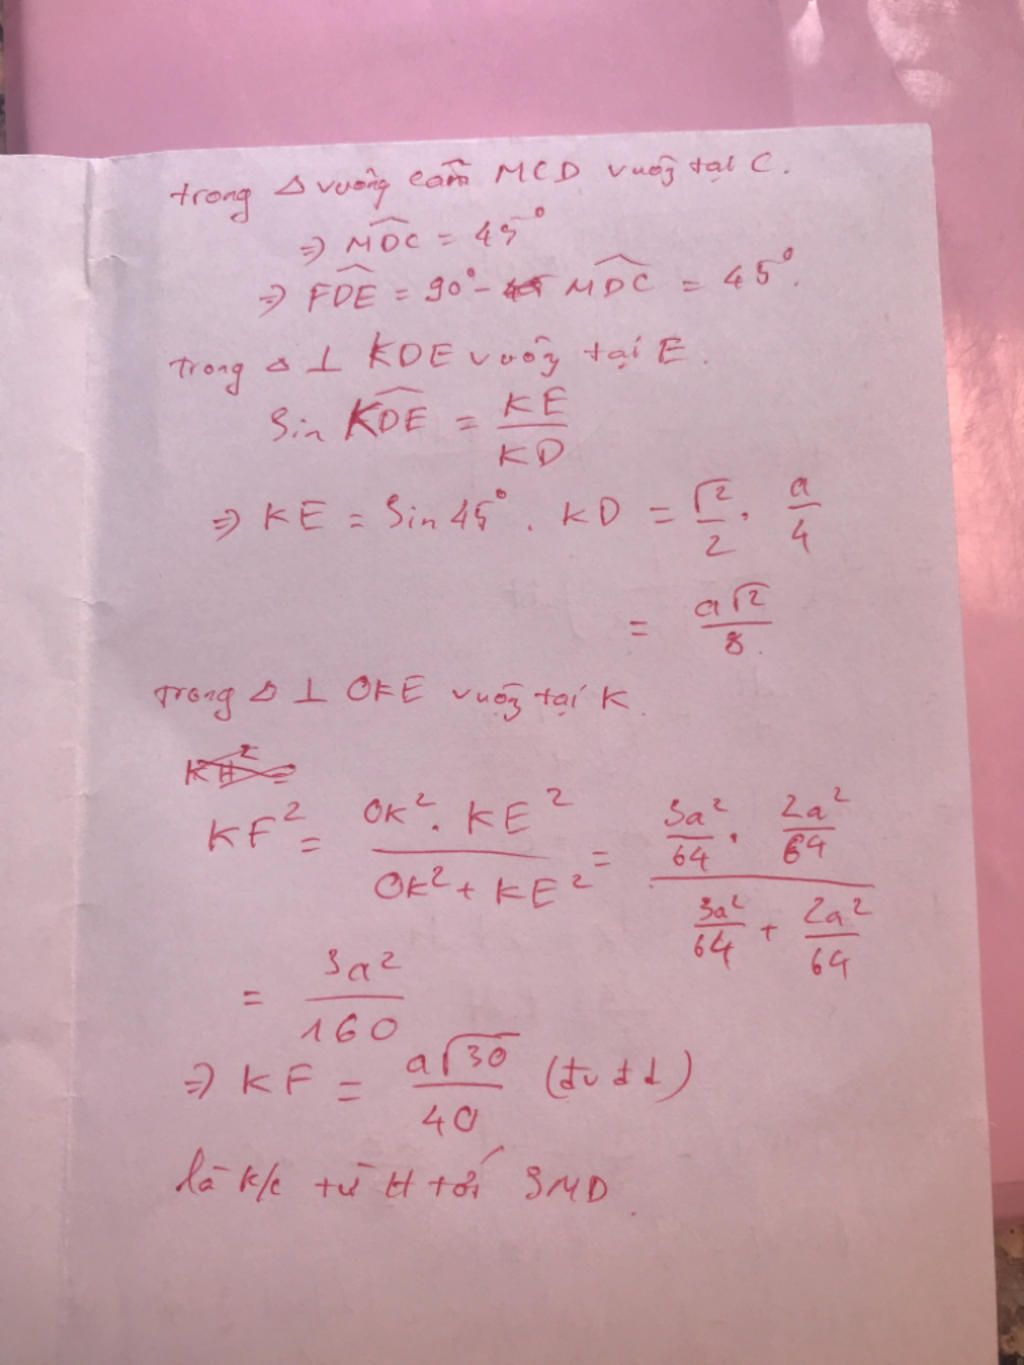 trong Δ vuông cân MCD vuông tại C.
⇒ MDC = 45°
⇒ FDE = 90° - MDC = 45°.
Trong Δ ⊥ KDE vuông tại E.
Sin KDE = KE / KD
⇒ KE = Sin 45° . KD = √2/2 . a/4
= a√2 / 8.
Trong Δ ⊥ OKE vuông tại K.
KH² =
KF² = (OK² . KE²) / (OK² + KE²) = (3a²/64 . 2a²/64) / (3a²/64 + 2a²/64)
= 3a² / 160
⇒ KF = a√30 / 40 (đvđd)
là k/c từ H tới SMD.